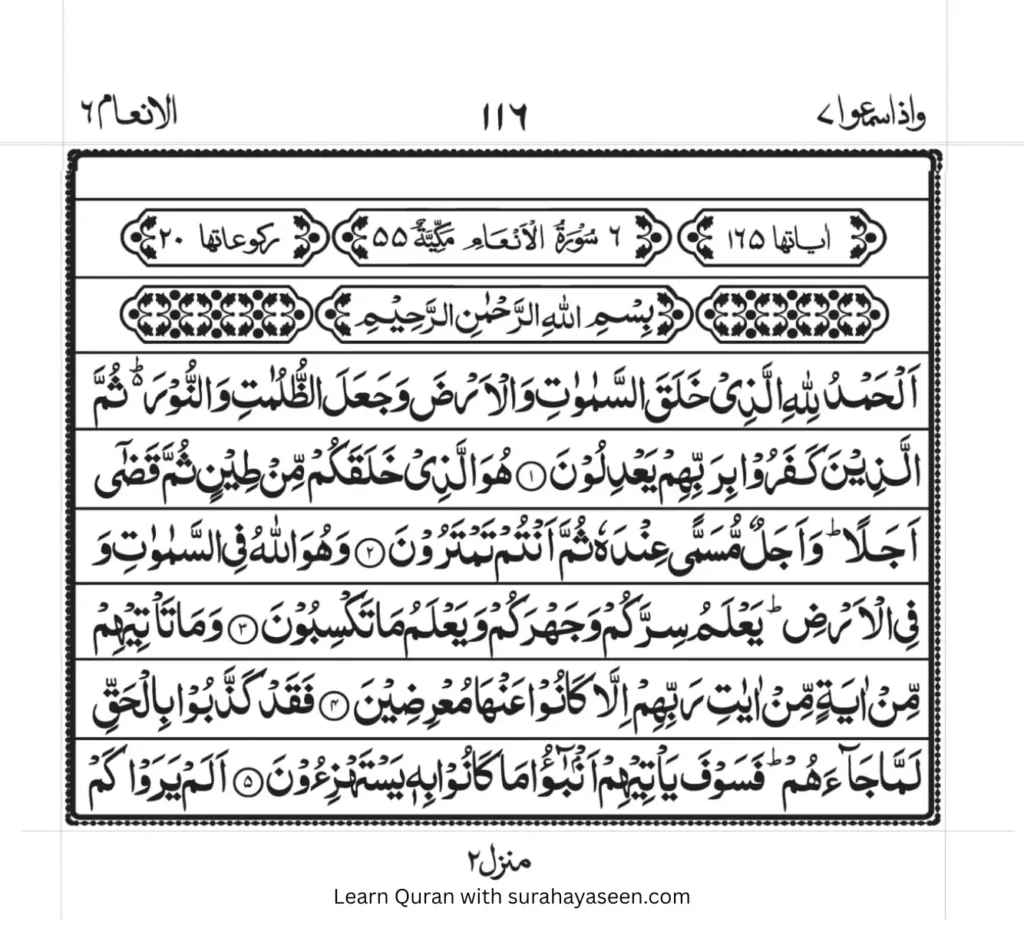 واذاسمعوا ٧ ١١٦ الانعام ٦
اياتها ١٦٥ ٦ سُوْرَةُ الْاَنْعَامِ مَكِّيَّةٌ ٥٥ ركوعاتها ٢٠
بِسْمِ اللّٰهِ الرَّحْمٰنِ الرَّحِيْمِ
اَلْحَمْدُ لِلّٰهِ الَّذِىْ خَلَقَ السَّمٰوٰتِ وَالْاَرْضَ وَجَعَلَ الظُّلُمٰتِ وَالنُّوْرَ ؕ۬ ثُمَّ
الَّذِيْنَ كَفَرُوْا بِرَبِّهِمْ يَعْدِلُوْنَ ۝١ هُوَ الَّذِىْ خَلَقَكُمْ مِّنْ طِيْنٍ ثُمَّ قَضٰٓى
اَجَلًا ؕ وَاَجَلٌ مُّسَمًّى عِنْدَهٗ ثُمَّ اَنْتُمْ تَمْتَرُوْنَ ۝٢ وَهُوَ اللّٰهُ فِى السَّمٰوٰتِ وَ
فِى الْاَرْضِ ؕ يَعْلَمُ سِرَّكُمْ وَجَهْرَكُمْ وَيَعْلَمُ مَا تَكْسِبُوْنَ ۝٣ وَمَا تَاْتِيْهِمْ
مِّنْ اٰيَةٍ مِّنْ اٰيٰتِ رَبِّهِمْ اِلَّا كَانُوْا عَنْهَا مُعْرِضِيْنَ ۝٤ فَقَدْ كَذَّبُوْا بِالْحَقِّ
لَمَّا جَآءَهُمْ ؕ فَسَوْفَ يَاْتِيْهِمْ اَنْۢبٰٓؤُا مَا كَانُوْا بِهٖ يَسْتَهْزِءُوْنَ ۝٥ اَلَمْ يَرَوْا كَمْ
منزل ٢
Learn Quran with surahayaseen.com